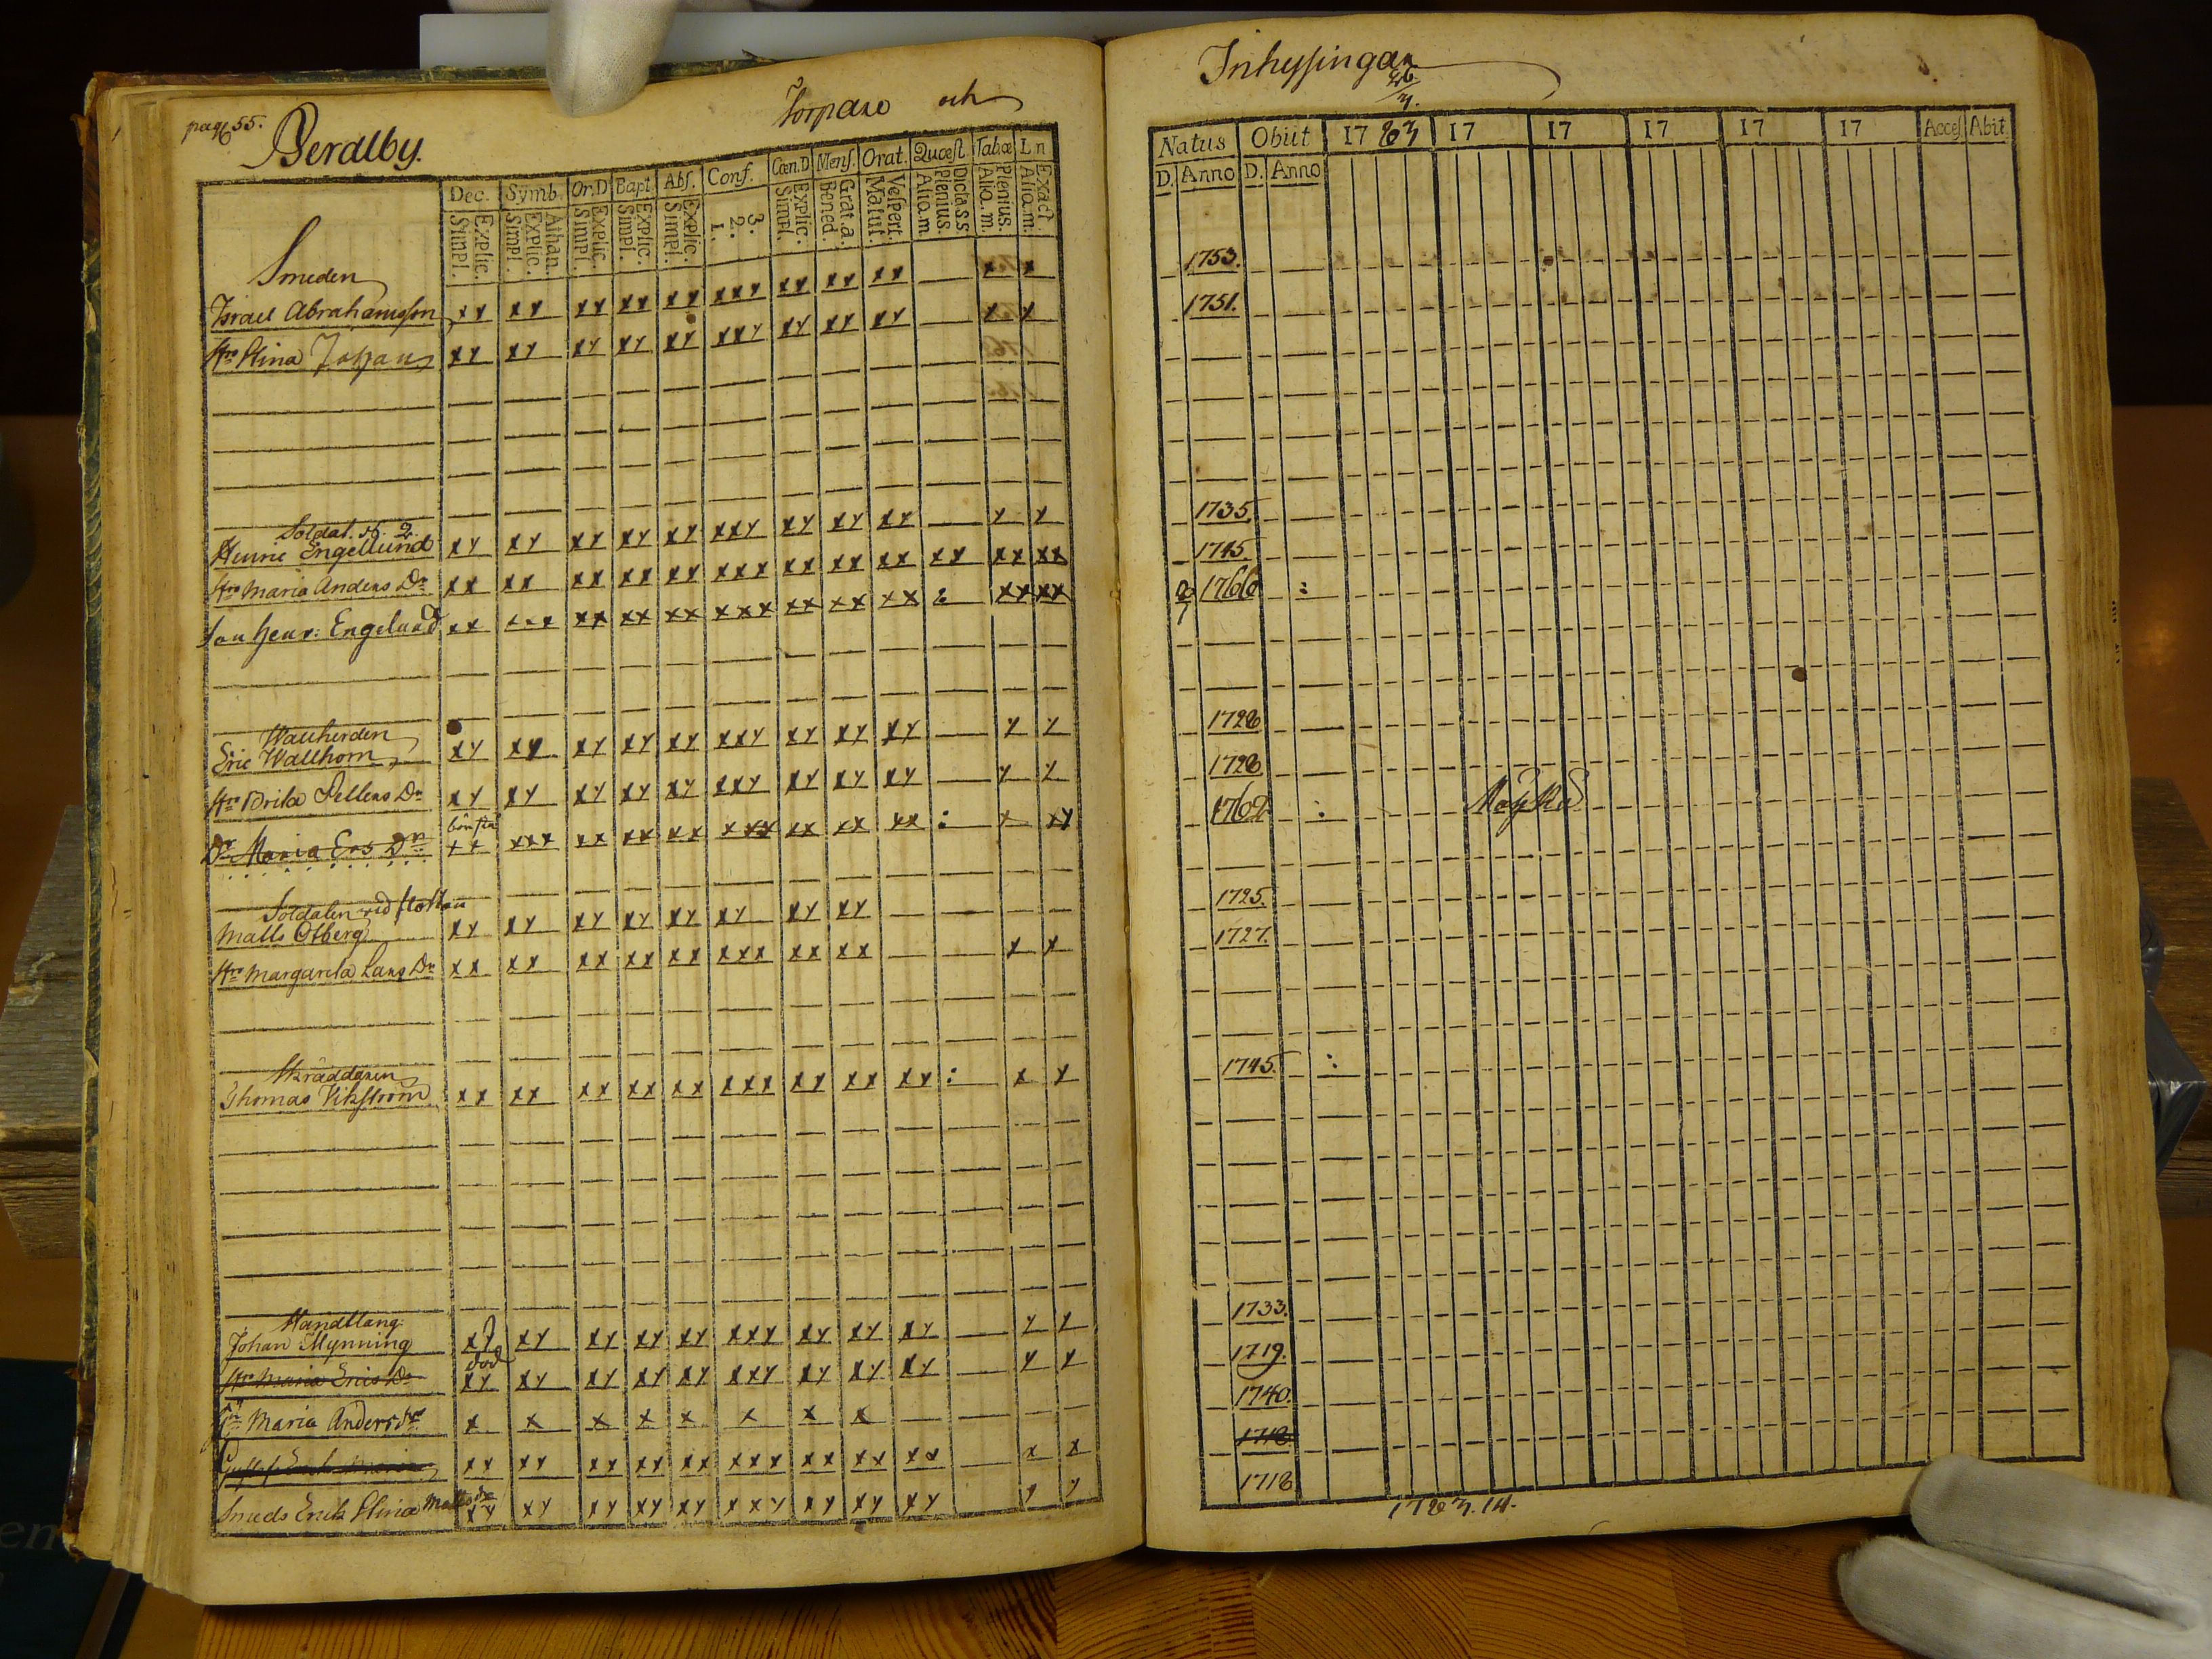 pag 55.
Beralby.
Torpare och
Dec. Symb. Or.D Bapt. Abs. Conf. Cœn.D Mens. Orat. Quæst. Tabœ L n
Explic. Simpl. Athan. Explic. Simpl. Explic. Simpl. Explic. Simpl. Explic. Simpl. 3. 2. 1. Explic. Simpl. Grat. a. Bened. Vespert. Matut. Dicta ss Plenius. Aliq.m. Plenius. Aliq.m. Exact. Aliq.m.
Smeden
Israel Abrahamsson xx xx xx xx xx xxx xx xx xx x x
Hru Stina Johans xx xx xx xx xx xxx xx xx xx x x
Soldat. N. 2.
Henric Engellund xx xx xx xx xx xxx xx xx xx x x
Hru Maria Anders Dr xx xx xx xx xx xxx xx xx xx xx xx xx
Son Henr: Engelund xx xxx xx xx xx xxx xx xx xx xx xx
Wallherden
Eric Wallhorn xx xx xx xx xx xxx xx xx xx x x
Hru Brita Pellers Dr xx xx xx xx xx xxx xx xx xx x x
Dr Maria Ers Dr xx xxx xx xx xx xxx xx xx xx : x xx
Soldaten
Matts Ölberg xx xx xx xx xx xx xx xx
Hru Margareta Lars Dr xx xx xx xx xx xxx xx xx x x
Skräddaren
Thomas Vikström xx xx xx xx xx xxx xx xx xx : x x
Handtlang:
Johan Mynning xx xx xx xx xx xxx xx xx xx x x
död
Hru Maria Erics Dr xx xx xx xx xx xxx xx xx xx x x
Maria Andersdr x x x x x x x x
xx xx xx xx xx xxx xx xx xx x x
Smeds Erik Stina Mattsdr xx xx xx xx xx xxx xx xx xx x x
Inhysingar
26/3.
Natus Obiit 17 83 17 17 17 17 17 Acces Abit
D. Anno D. Anno
1753.
1751.
1735.
1745.
8/7 1766 :
1728
1728
1762 :
1725.
1727.
1745. :
1733.
1719.
1740.
1718
1718
1783. 14.